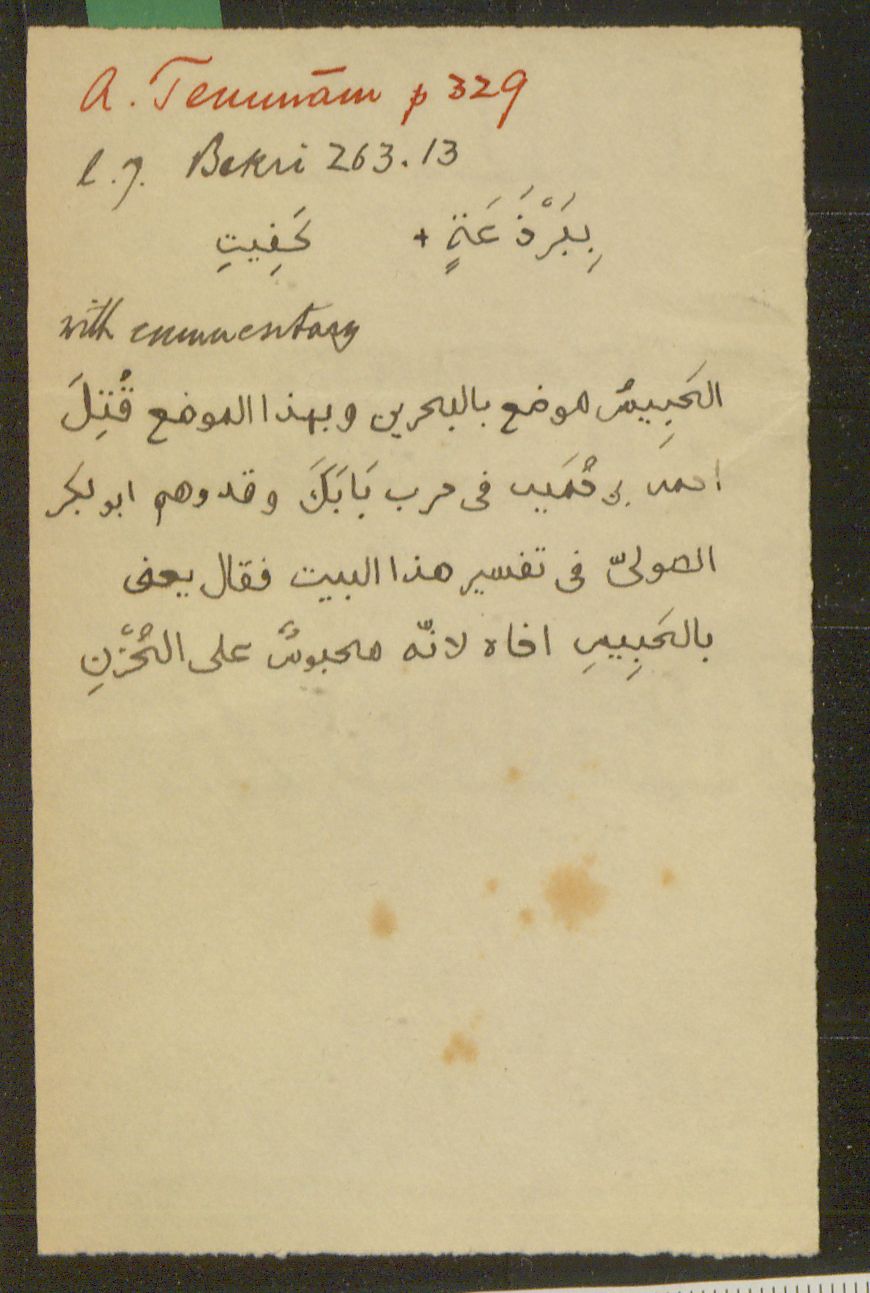 A. Temmām p 329
l. 7. Bekri 263.13
بِبَرْذَعَةٍ + لَحَفِيتِ
with commentary
الحَبِيسُ موضع بالبحرين وبهذا الموضع قُتِلَ
احمد بن حُمَيد فى حرب بَابَكَ وقد وهم ابو بكر
الصولىّ فى تفسير هذا البيت فقال يعنى
بالحَبِيسِ اخاه لانّه محبوسٌ على الحُزْنِ